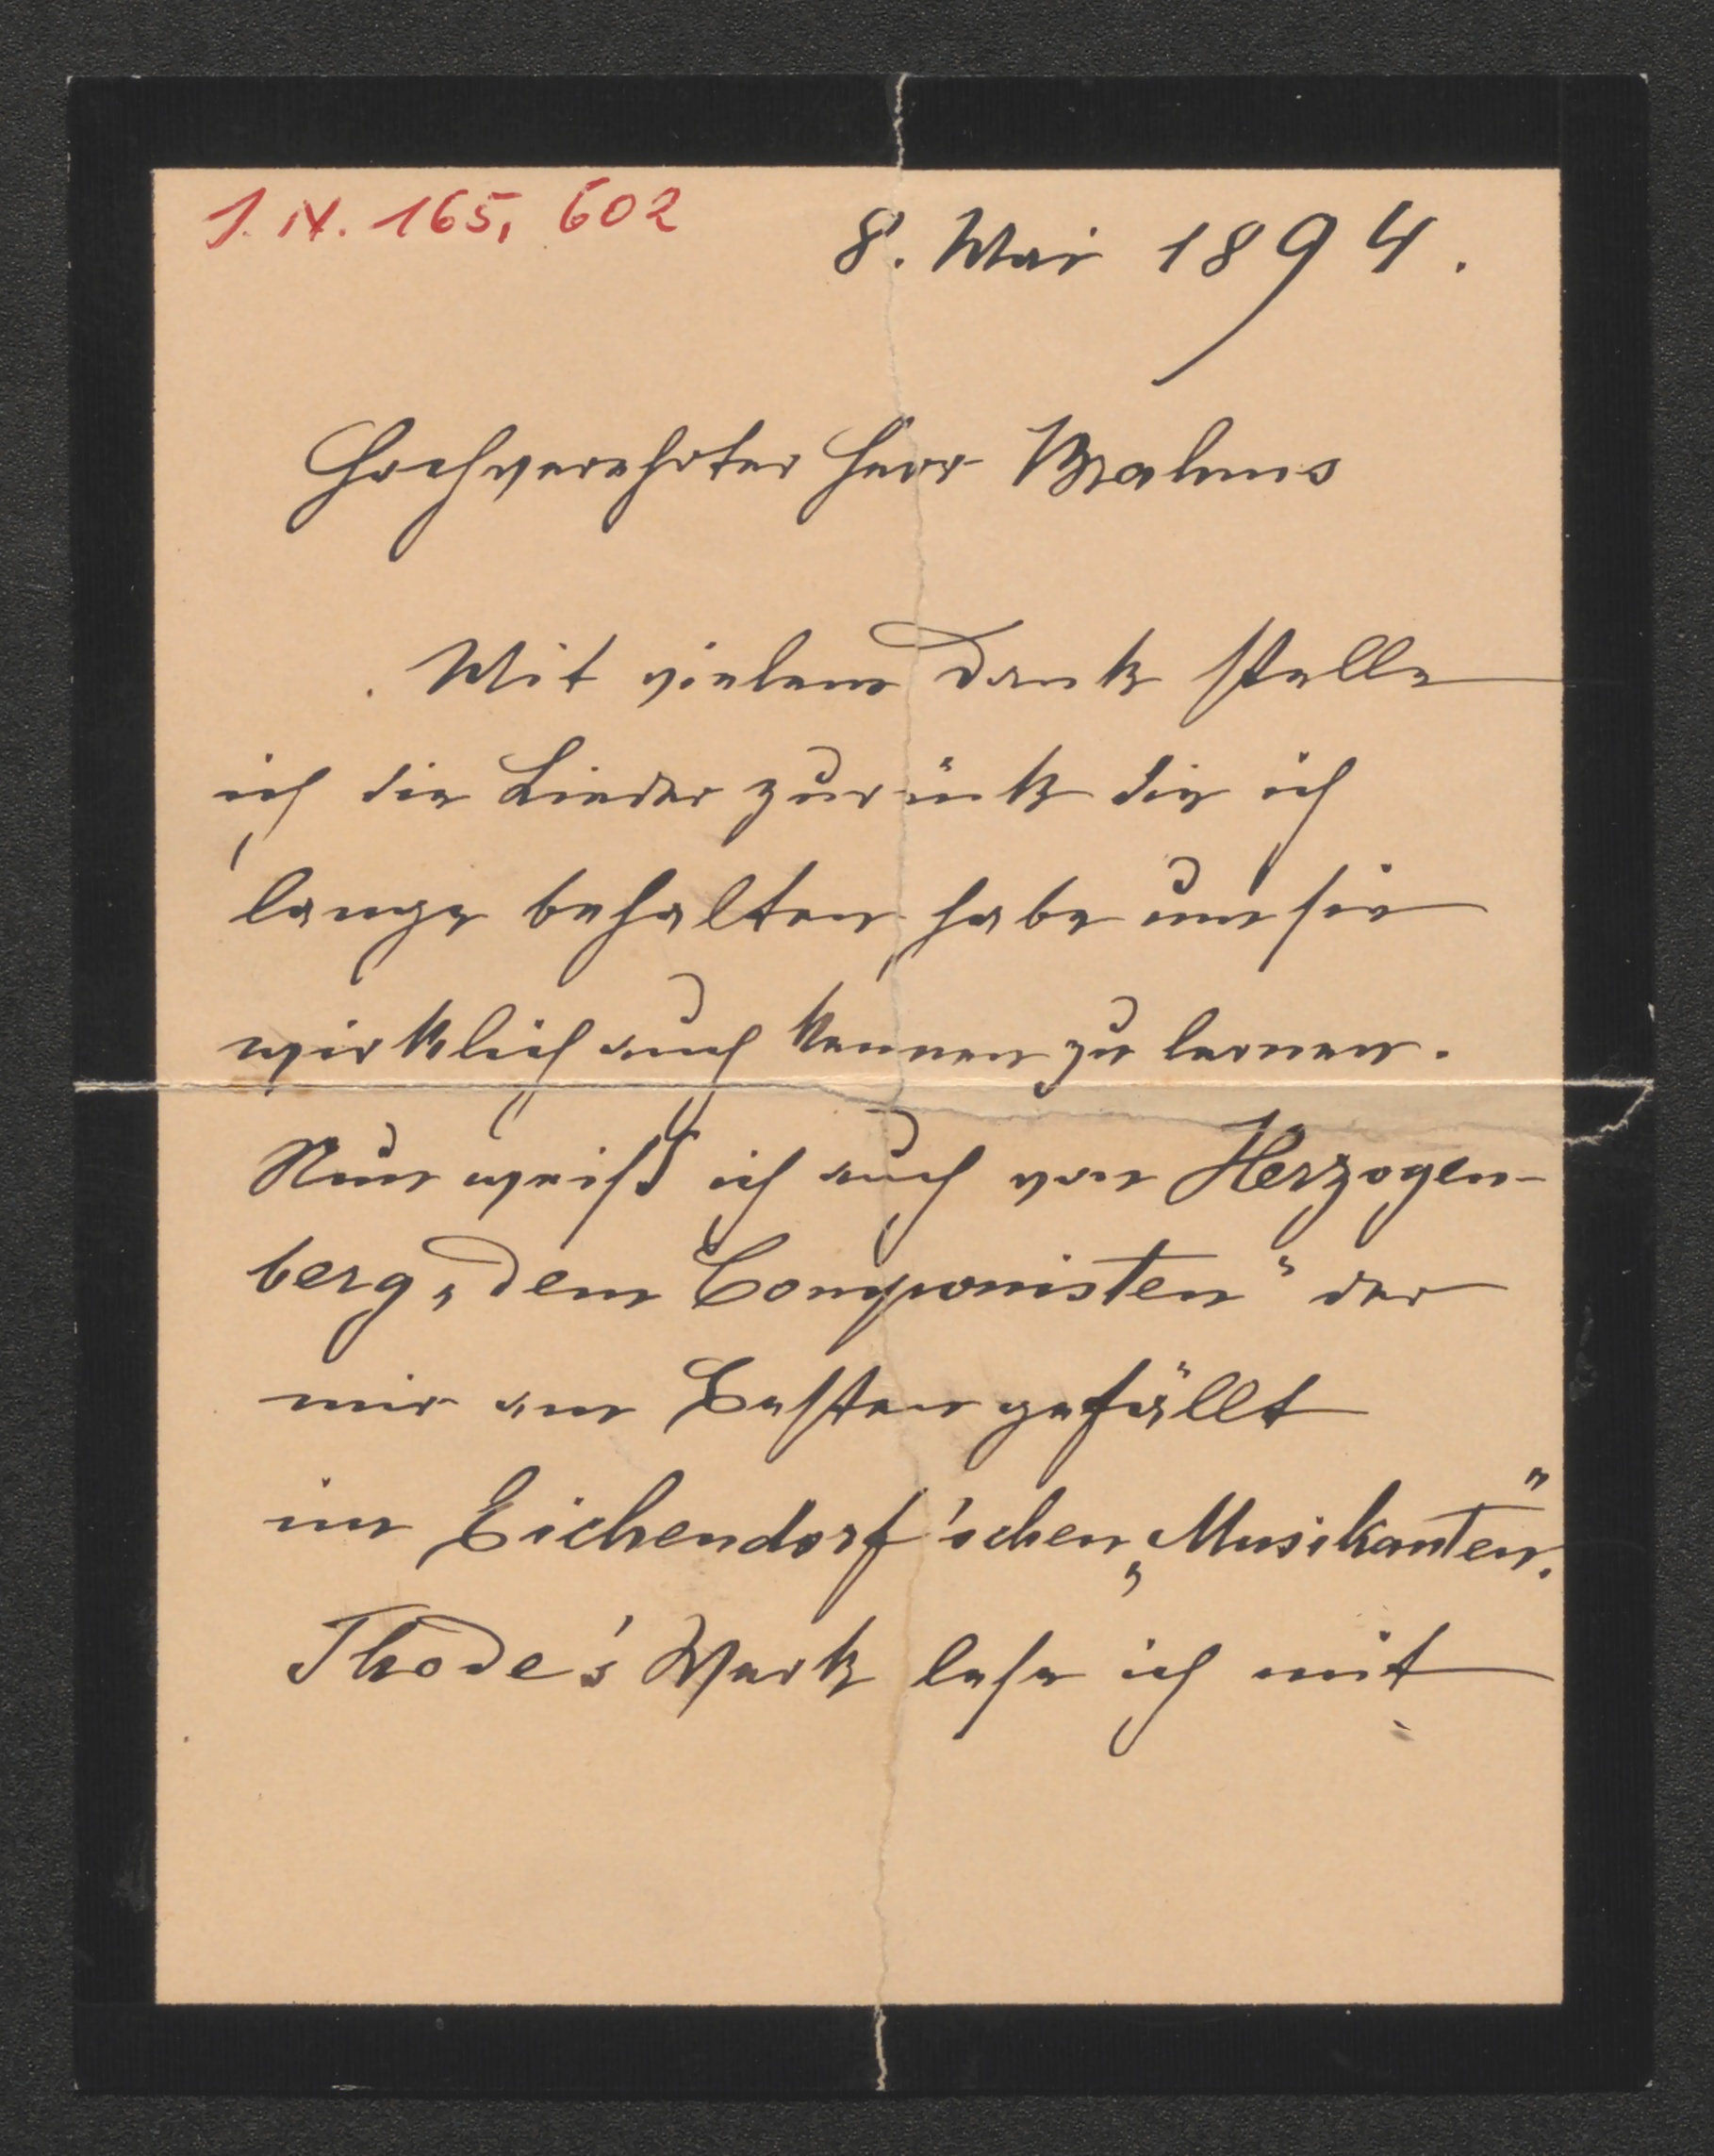 I. N. 165, 602
8. Mai 1894.
Hochverehrter Herr Brahms
Mit vielem Dank stelle
ich die Lieder zurück die ich
lange behalten habe um sie
wirklich auch kennen zu lernen.
Nun weiß ich auch von Herzogen-
berg „dem Componisten“ der
mir am Besten gefällt
im Eichendorf'schen „Musikanten“.
Thode's Werk lese ich mit